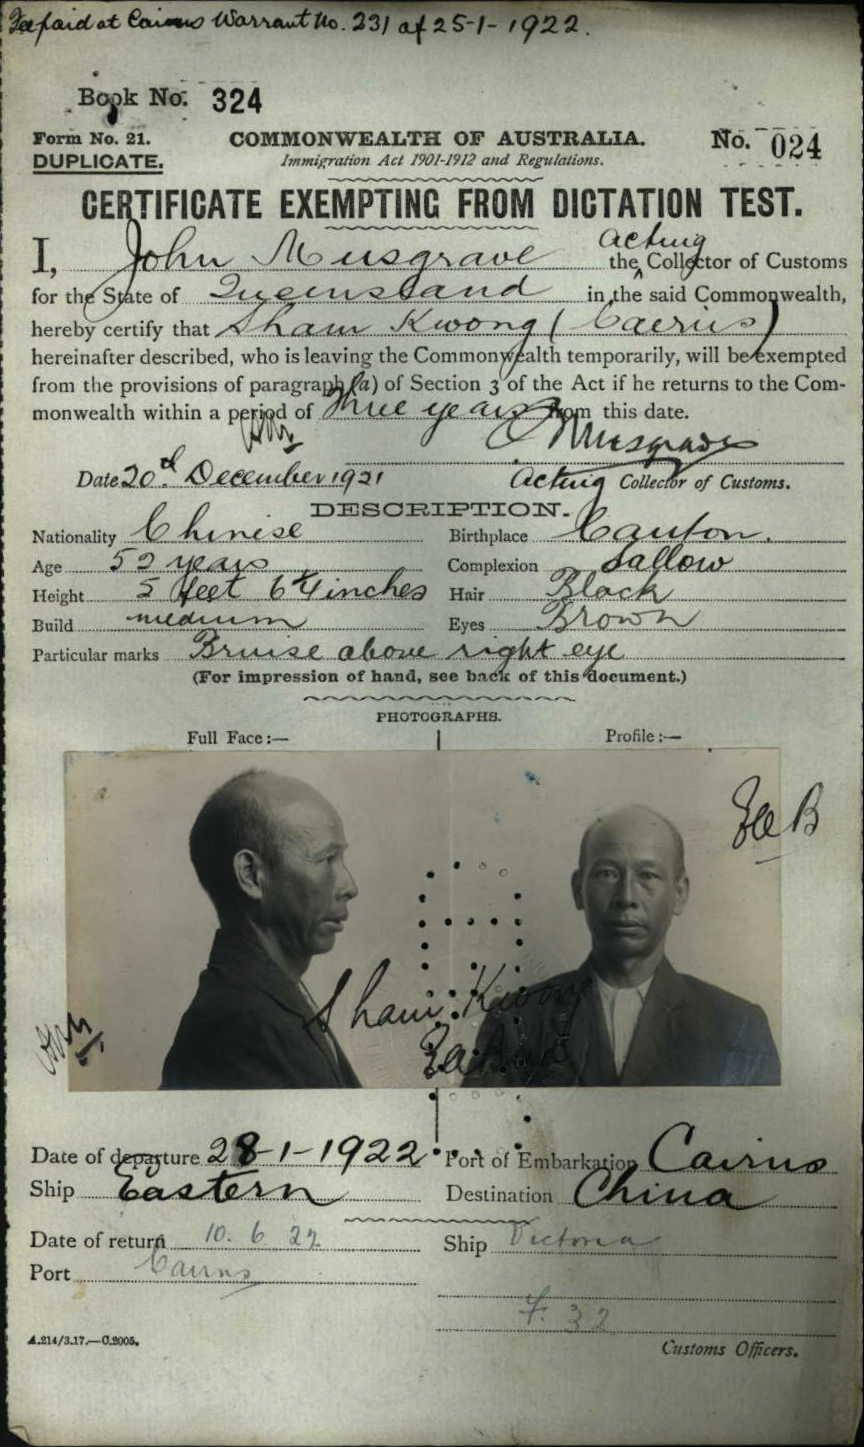 Fee paid at Cairns Warrant No. 231 of 25-1-1922.
Book No. 324
Form No. 21. COMMONWEALTH OF AUSTRALIA. No. 024
DUPLICATE. Immigration Act 1901-1912 and Regulations.
CERTIFICATE EXEMPTING FROM DICTATION TEST.
Acting
I, John Musgrave the Collector of Customs
for the State of Queensland in the said Commonwealth,
hereby certify that Sham Kwong (Cairns)
hereinafter described, who is leaving the Commonwealth temporarily, will be exempted
from the provisions of paragraph (a) of Section 3 of the Act if he returns to the Com-
monwealth within a period of Three years from this date.
Musgrave
Date 20th December 1921 Acting Collector of Customs.
DESCRIPTION.
Nationality Chinese Birthplace Canton.
Age 52 years Complexion Sallow
Height 5 feet 6 1/4 inches Hair Black
Build medium Eyes Brown
Particular marks Bruise above right eye
(For impression of hand, see back of this document.)
PHOTOGRAPHS.
Full Face:— Profile:—
Sham Kwong
Date of departure 28-1-1922 Port of Embarkation Cairns
Ship Eastern Destination China
Date of return 10. 6 22 Ship Victoria
Port Cairns
F. 32
A.214/3.17.—C.2005. Customs Officers.